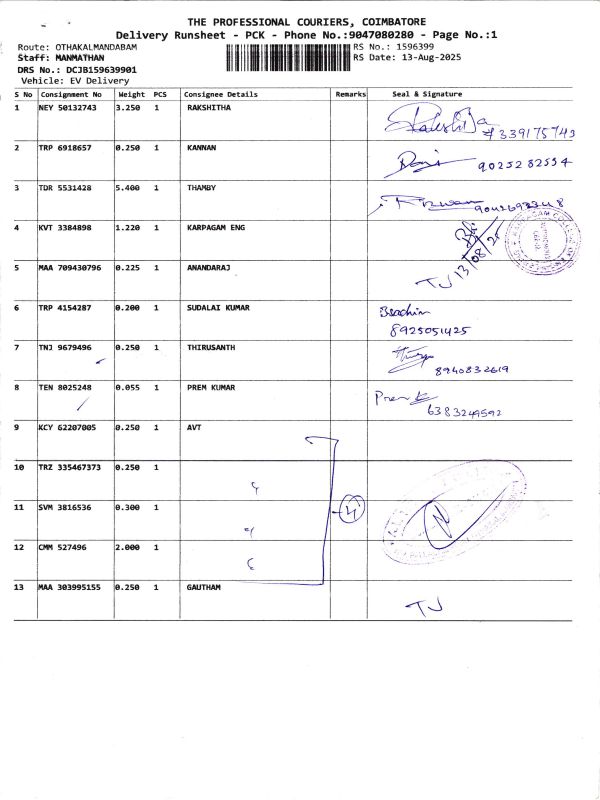 THE PROFESSIONAL COURIERS, COIMBATORE
Delivery Runsheet - PCK - Phone No.:9047080280 - Page No.:1
Route: OTHAKALMANDABAM
RS No.: 1596399
Staff: MANMATHAN
RS Date: 13-Aug-2025
DRS No.: DCJB159639901
Vehicle: EV Delivery
S No Consignment No Weight PCS Consignee Details Remarks Seal & Signature
1 NEY 50132743 3.250 1 RAKSHITHA
7339175743
2 TRP 6918657 0.250 1 KANNAN
9025282554
3 TDR 5531428 5.400 1 THAMBY
4 KVT 3384898 1.220 1 KARPAGAM ENG
13/08/25
5 MAA 709430796 0.225 1 ANANDARAJ TJ
6 TRP 4154287 0.200 1 SUDALAI KUMAR
8925051425
7 TNJ 9679496 0.250 1 THIRUSANTH
8940832619
8 TEN 8025248 0.055 1 PREM KUMAR Prem K
6383249592
9 KCY 62207005 0.250 1 AVT
10 TRZ 335467373 0.250 1 "
11 SVM 3816536 0.300 1 " 4
12 CMM 527496 2.000 1 "
13 MAA 303995155 0.250 1 GAUTHAM TJ